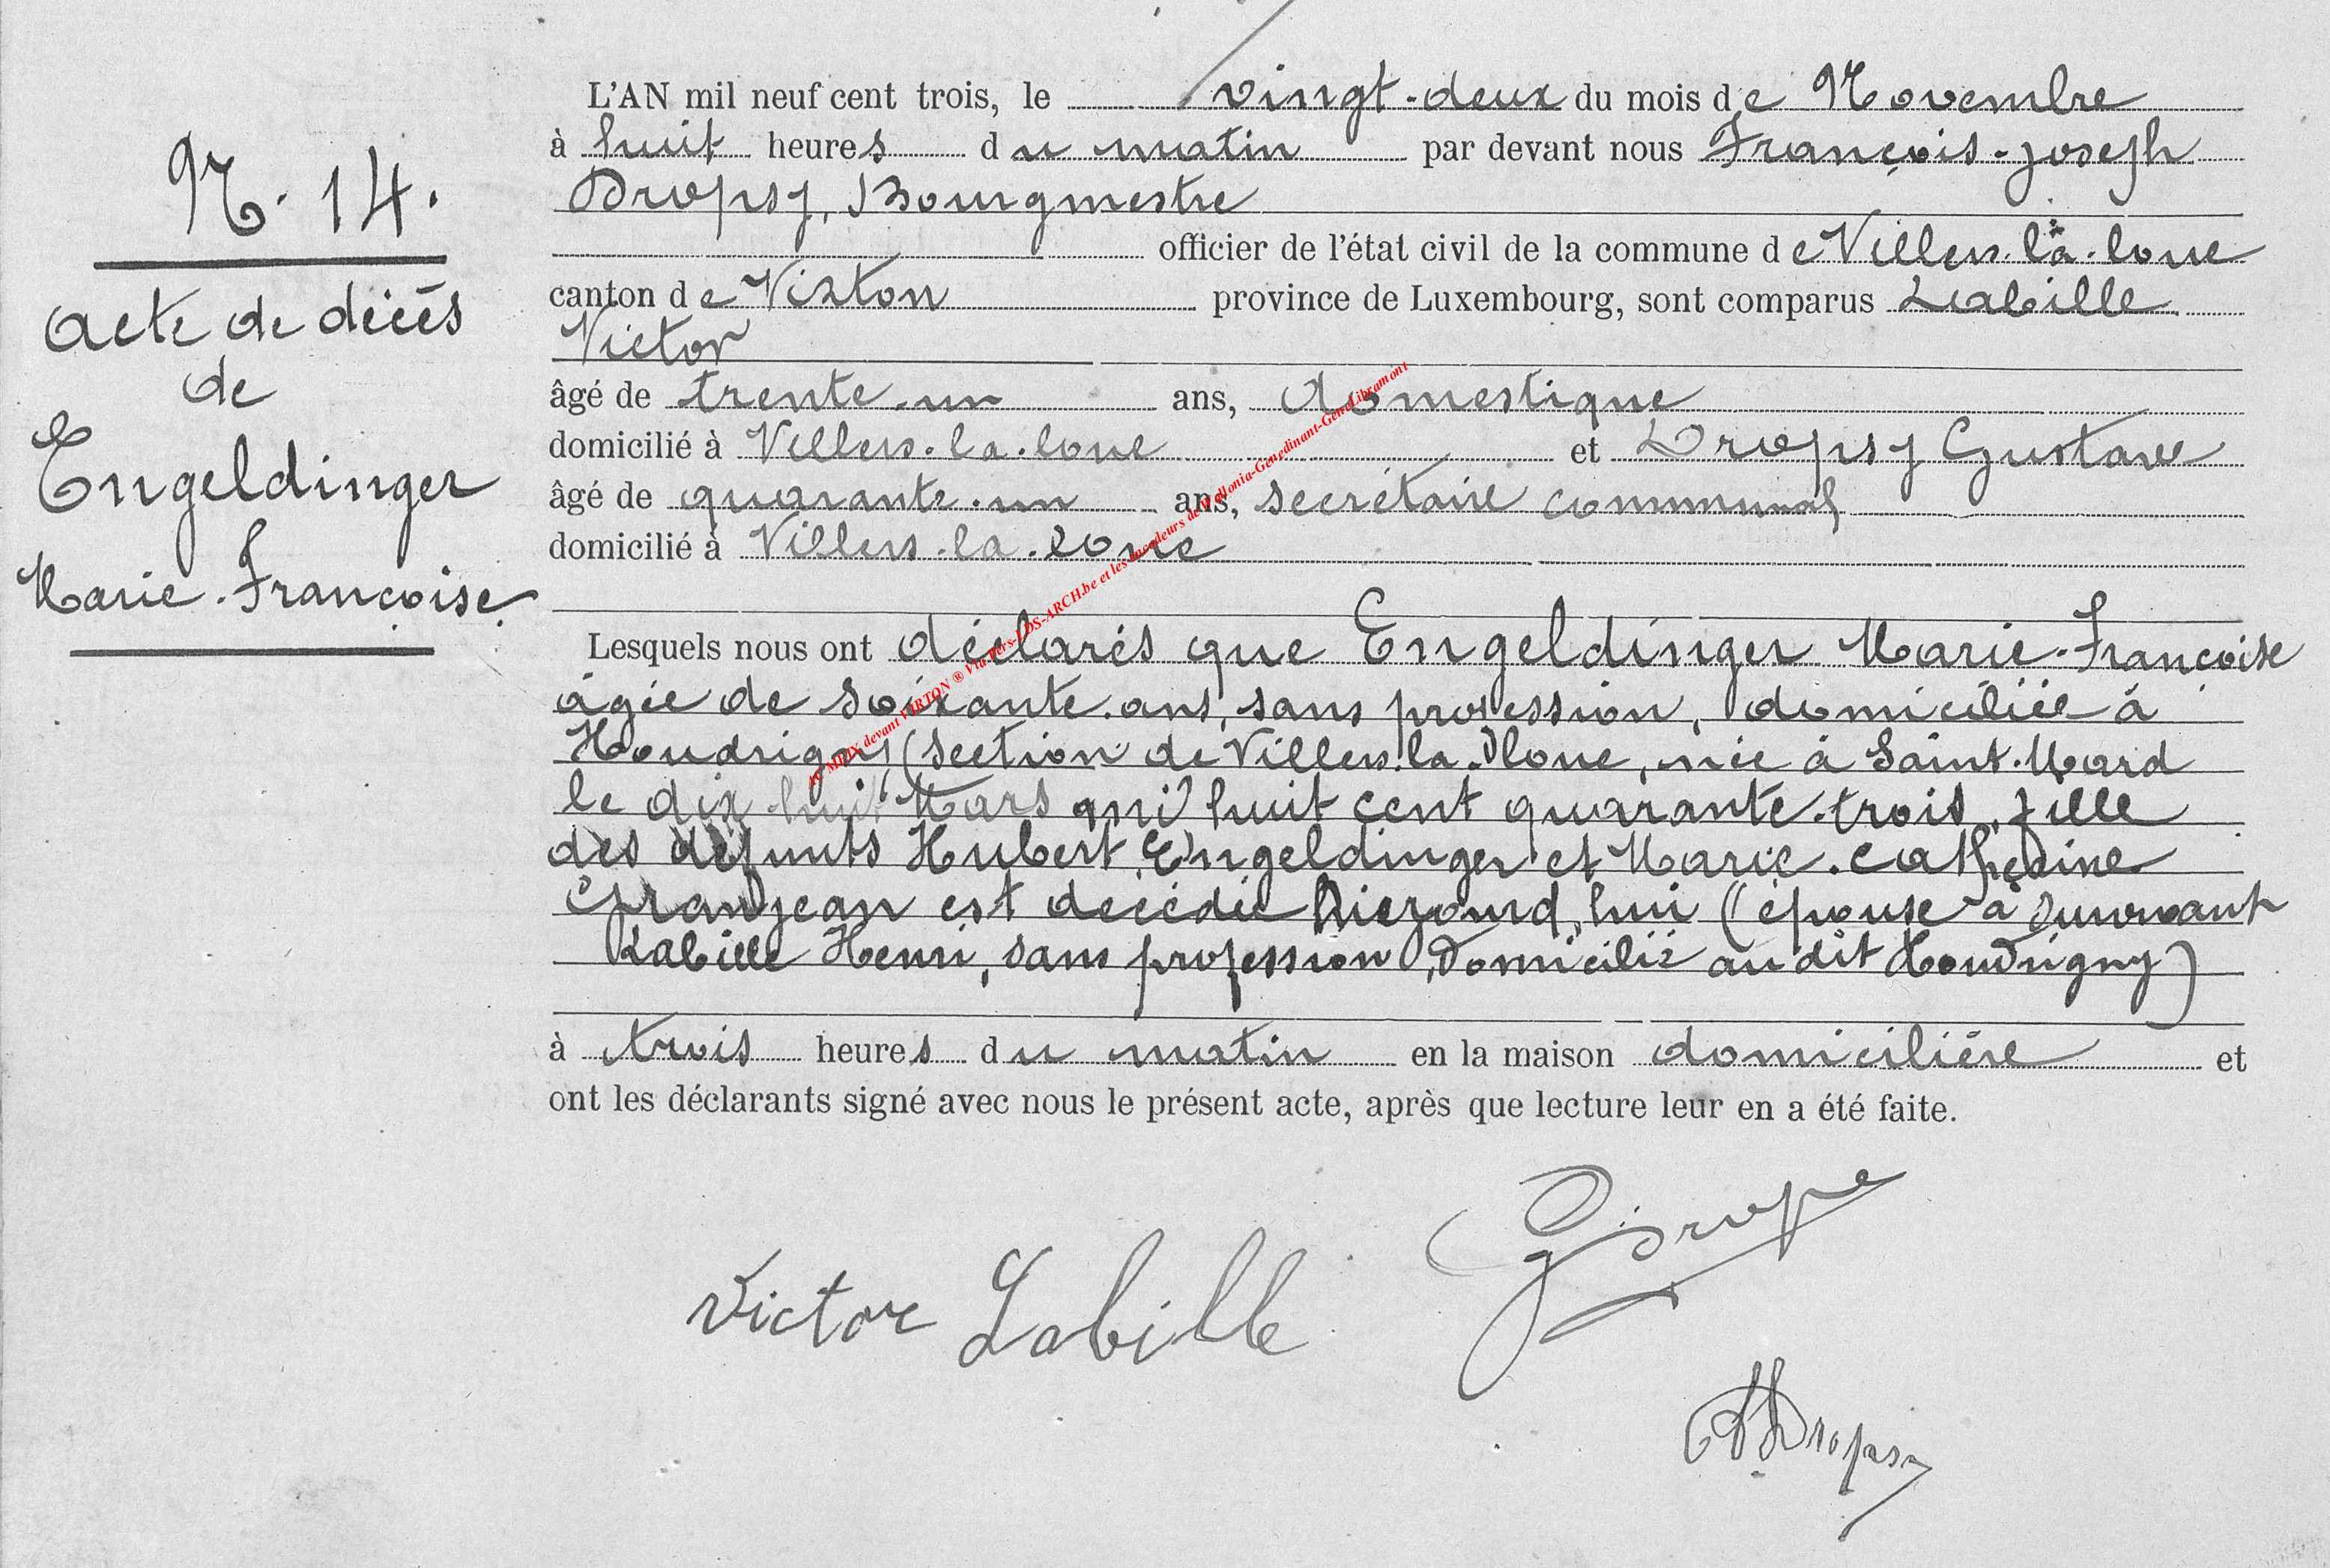 N. 14.
Acte de décès
de
Engeldinger
Marie-Françoise
L'AN mil neuf cent trois, le vingt-deux du mois de Novembre
à huit heures du matin par devant nous François-Joseph
Dropsy, Bourgmestre
officier de l'état civil de la commune de Villers-la-loue
canton de Virton province de Luxembourg, sont comparus Labille
Victor
âgé de trente-un ans, domestique
domicilié à Villers-la-loue et Dropsy Gustave
âgé de quarante-un ans, secrétaire communal
domicilié à Villers-la-Loue
Lesquels nous ont déclarés que Engeldinger Marie-Françoise
âgée de soixante ans, sans profession, domiciliée à
Houdrigny (section de Villers-la-loue, née à Saint-Mard
le dix-huit Mars mil huit cent quarante-trois, fille
des défunts Hubert Engeldinger et Marie-Catherine
Granjean est décédée aujourd'hui (épouse à survivant
Labille Henri, sans profession, domicilié au dit Houdrigny)
à trois heures du matin en la maison domicilière et
ont les déclarants signé avec nous le présent acte, après que lecture leur en a été faite.
Victor Labille
Dropsy
AC MEIX devant VIRTON ® Via vers-LDS-ARCH.be et les encodeurs de Wallonia-Genedinant-GeneLibramont